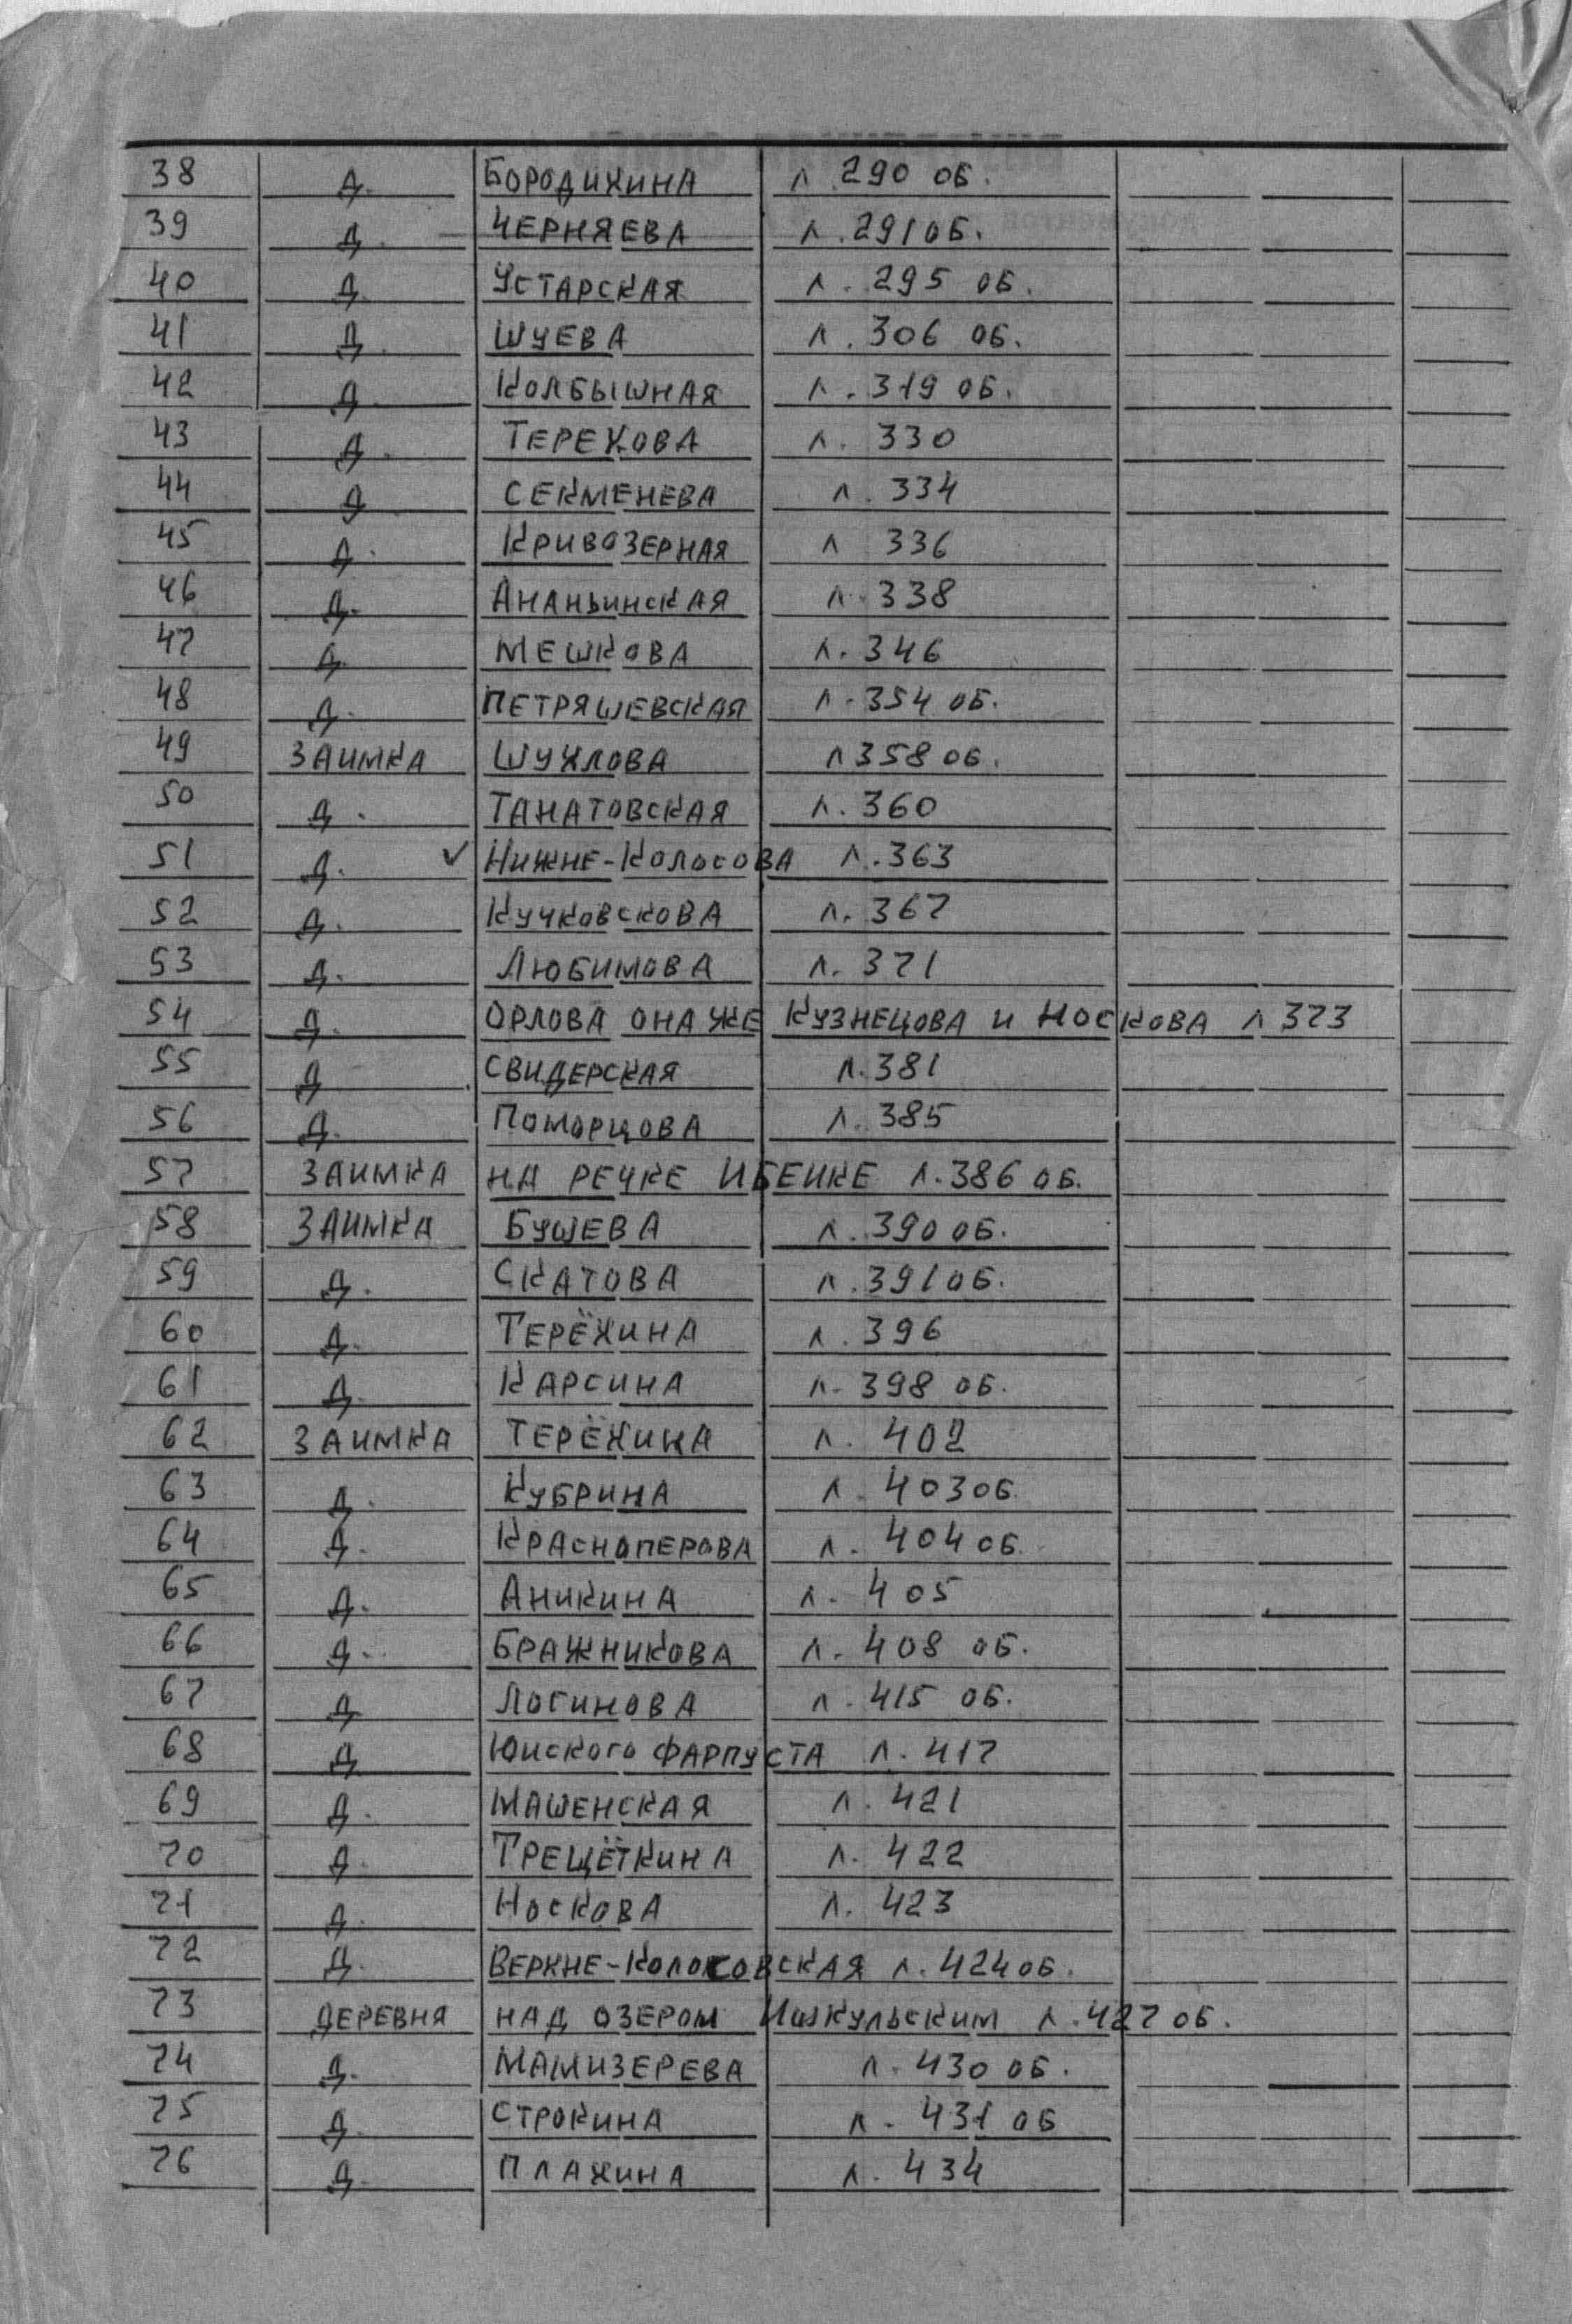 38 Д. БОРОДИХИНА л. 290 ОБ.
39 Д. ЧЕРНЯЕВА л. 291 ОБ.
40 Д. УСТАРСКАЯ л. 295 ОБ.
41 Д. ШУЕВА л. 306 ОБ.
42 Д. КОЛБЫШНАЯ л. 319 ОБ.
43 Д. ТЕРЕХОВА л. 330
44 Д СЕКМЕНЕВА л. 334
45 Д. КРИВОЗЕРНАЯ л 336
46 Д. АНАНЬИНСКАЯ л. 338
47 Д. МЕШКОВА л. 346
48 Д. ПЕТРЯШЕВСКАЯ л. 354 ОБ.
49 ЗАИМКА ШУХЛОВА л 358 ОБ.
50 Д. ТАНАТОВСКАЯ л. 360
51 Д. ✓ НИЖНЕ-КОЛОСОВА л. 363
52 Д. КУЧКОВСКОВА л. 367
53 Д. ЛЮБИМОВА л. 371
54 Д. ОРЛОВА ОНА ЖЕ КУЗНЕЦОВА И НОСКОВА л 373
55 Д СВИДЕРСКАЯ л. 381
56 Д. ПОМОРЦОВА л. 385
57 ЗАИМКА НА РЕЧКЕ ИБЕЙКЕ л. 386 ОБ.
58 ЗАИМКА БУШЕВА л. 390 ОБ.
59 Д. СКАТОВА л. 391 ОБ.
60 Д. ТЕРЁХИНА л. 396
61 Д. КАРСИНА л. 398 ОБ.
62 ЗАИМКА ТЕРЁХИНА л. 402
63 Д. КУБРИНА л. 403 ОБ.
64 Д. КРАСНОПЕРОВА л. 404 ОБ.
65 Д. АНИКИНА л. 405
66 Д. БРАЖНИКОВА л. 408 ОБ.
67 Д ЛОГИНОВА л. 415 ОБ.
68 Д ЮИСКОГО ФАРПУСТА л. 417
69 Д. МАШЕНСКАЯ л. 421
70 Д. ТРЕЩЁТКИНА л. 422
71 Д. НОСКОВА л. 423
72 Д. ВЕРХНЕ-КОЛОСОВСКАЯ л. 424 ОБ.
73 ДЕРЕВНЯ НАД ОЗЕРОМ ИШКУЛЬСКИМ л. 427 ОБ.
74 Д. МАМИЗЕРЕВА л. 430 ОБ.
75 Д. СТРОКИНА л. 431 ОБ
76 Д. ПЛАХИНА л. 434